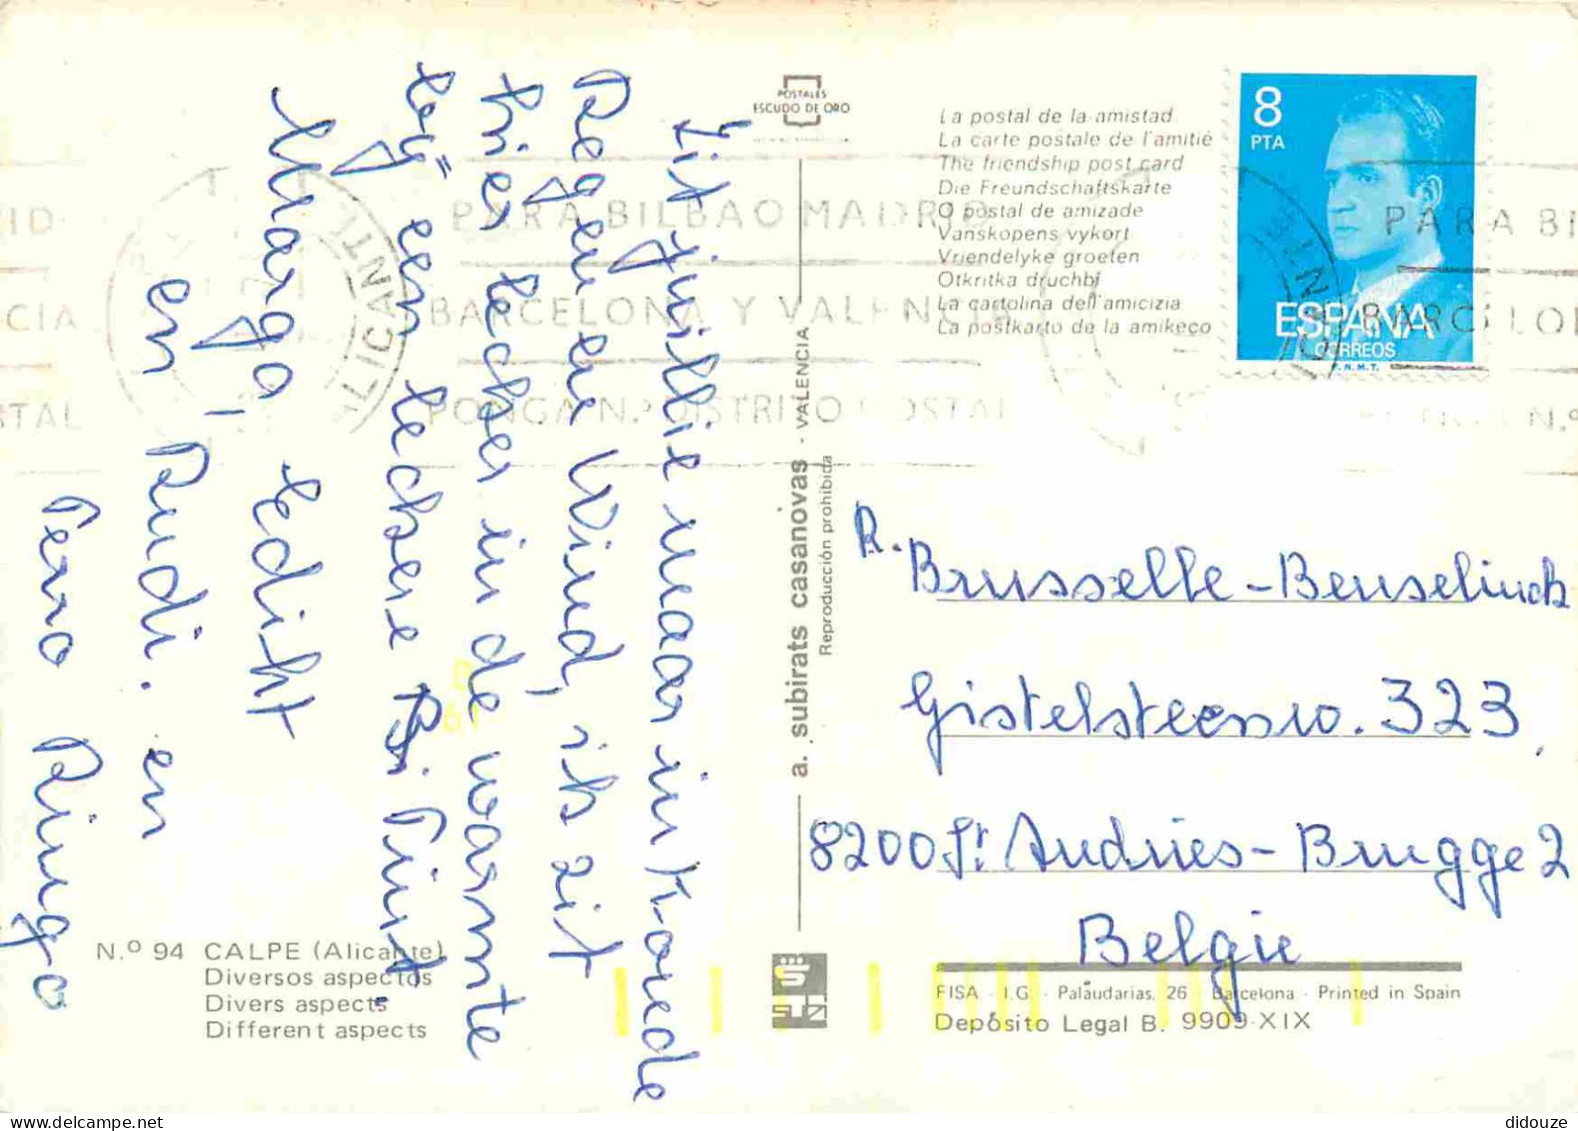 Zit jullie maar in Koude
Regen en Wind, ik zit
hier lekker in de warmte
bij een lekkere
Marga, Edith
en Rudi. en
Pero Ringo
POSTALES
ESCUDO DE ORO
La postal de la amistad
La carte postale de l'amitié
The friendship post card
Die Freundschaftskarte
O postal de amizade
Vanskopens vykort
Vriendelyke groeten
Otkritka druchbi
La cartolina dell'amicizia
La postkarto de la amikeco
8
PTA
ESPAÑA
CORREOS
F.N.M.T.
PARA BILBAO MADRID
BARCELONA Y VALENCIA
PONGA N.º DISTRITO POSTAL
ALICANTE
a. subirats casanovas - VALENCIA
Reproducción prohibida
R. Brusselle-Benselinck
Gistelsteenw. 323
8200 St Andries-Brugge 2
Belgie
N.º 94 CALPE (Alicante)
Diversos aspectos
Divers aspects
Different aspects
FISA - I.G. - Palaudarias, 26 - Barcelona - Printed in Spain
Depósito Legal B. 9909-XIX
didouze